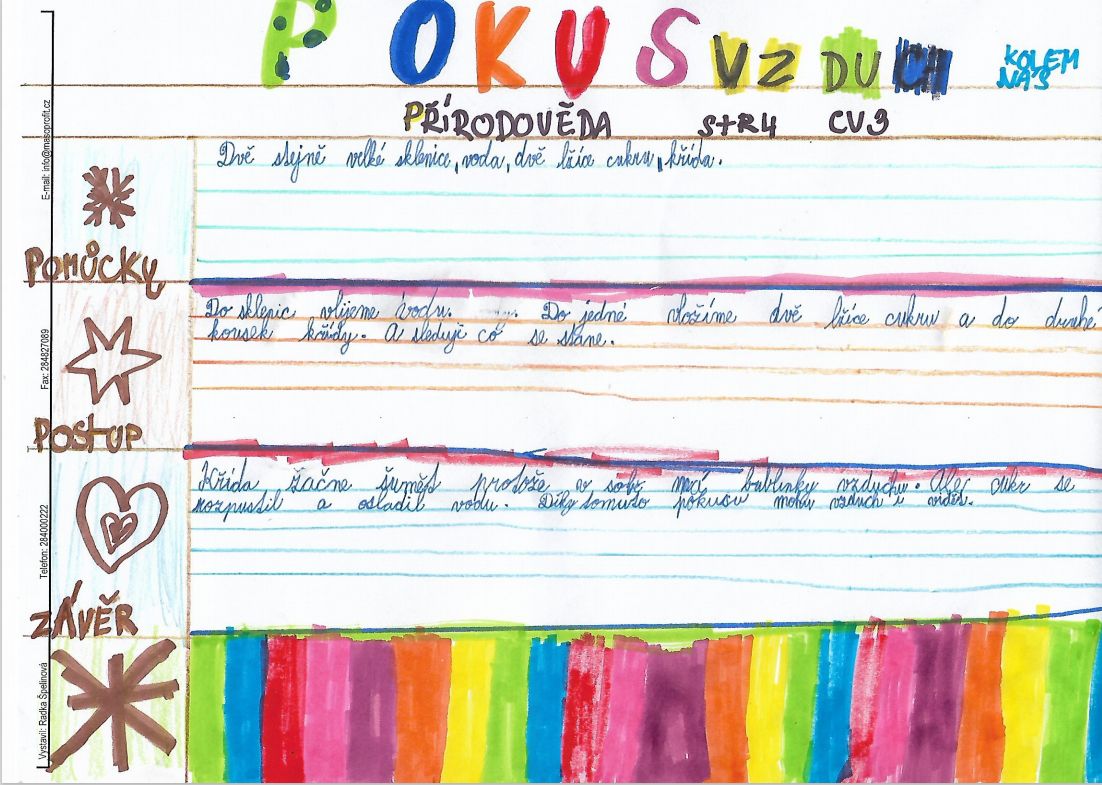 POKUS VZDUCH KOLEM
NÁS
PŘÍRODOVĚDA STR4 CV3
Dvě stejně velké sklenice, voda, dvě lžíce cukru, křída.
POMŮCKY
Do sklenic vlijeme vodu. Do jedné vložíme dvě lžíce cukru a do druhé
kousek křídy. A sleduj co se stane.
POSTUP
Křída začne šumět protože v sobě má bublinky vzduchu. Ale cukr se
rozpustil a osladil vodu. Díky tomuto pokusu mohu vzduch i vidět.
ZÁVĚR
E-mail: info@masoprofit.cz
Fax: 284827089
Telefon: 284000222
Vystavil: Radka Špelinová